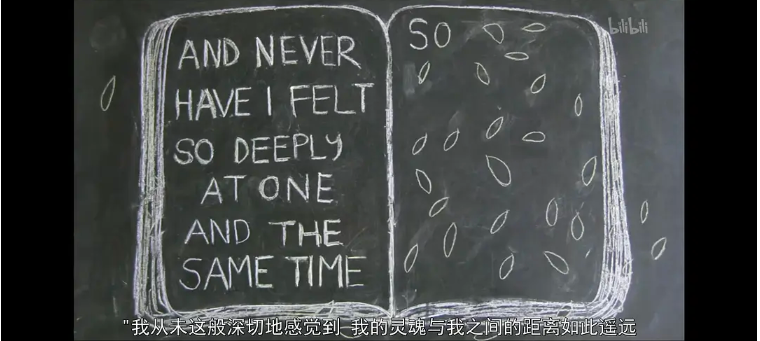 AND NEVER
HAVE I FELT
SO DEEPLY
AT ONE
AND THE
SAME TIME
SO
bilibili
"我从未这般深切地感觉到 我的灵魂与我之间的距离如此遥远